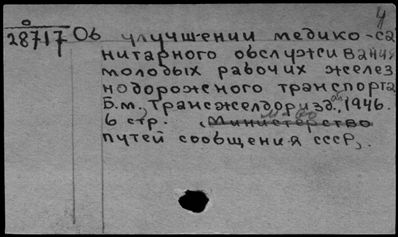 у
28717 Об улучшении медико-са
нитарного обслуживания
молодых рабочих желез
нодорожного транспорта
Б.м., Трансжелдориздат, 1946.
6 стр. (Министерство
путей сообщения СССР).